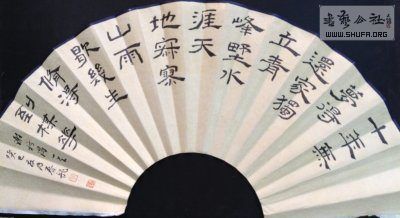 十年無
夢得
還家獨
立青
峰野水
涯天
地寂寥
山雨
歇幾生
脩得
到楳華
癸巳
書藝公社
WWW.SHUFA.ORG